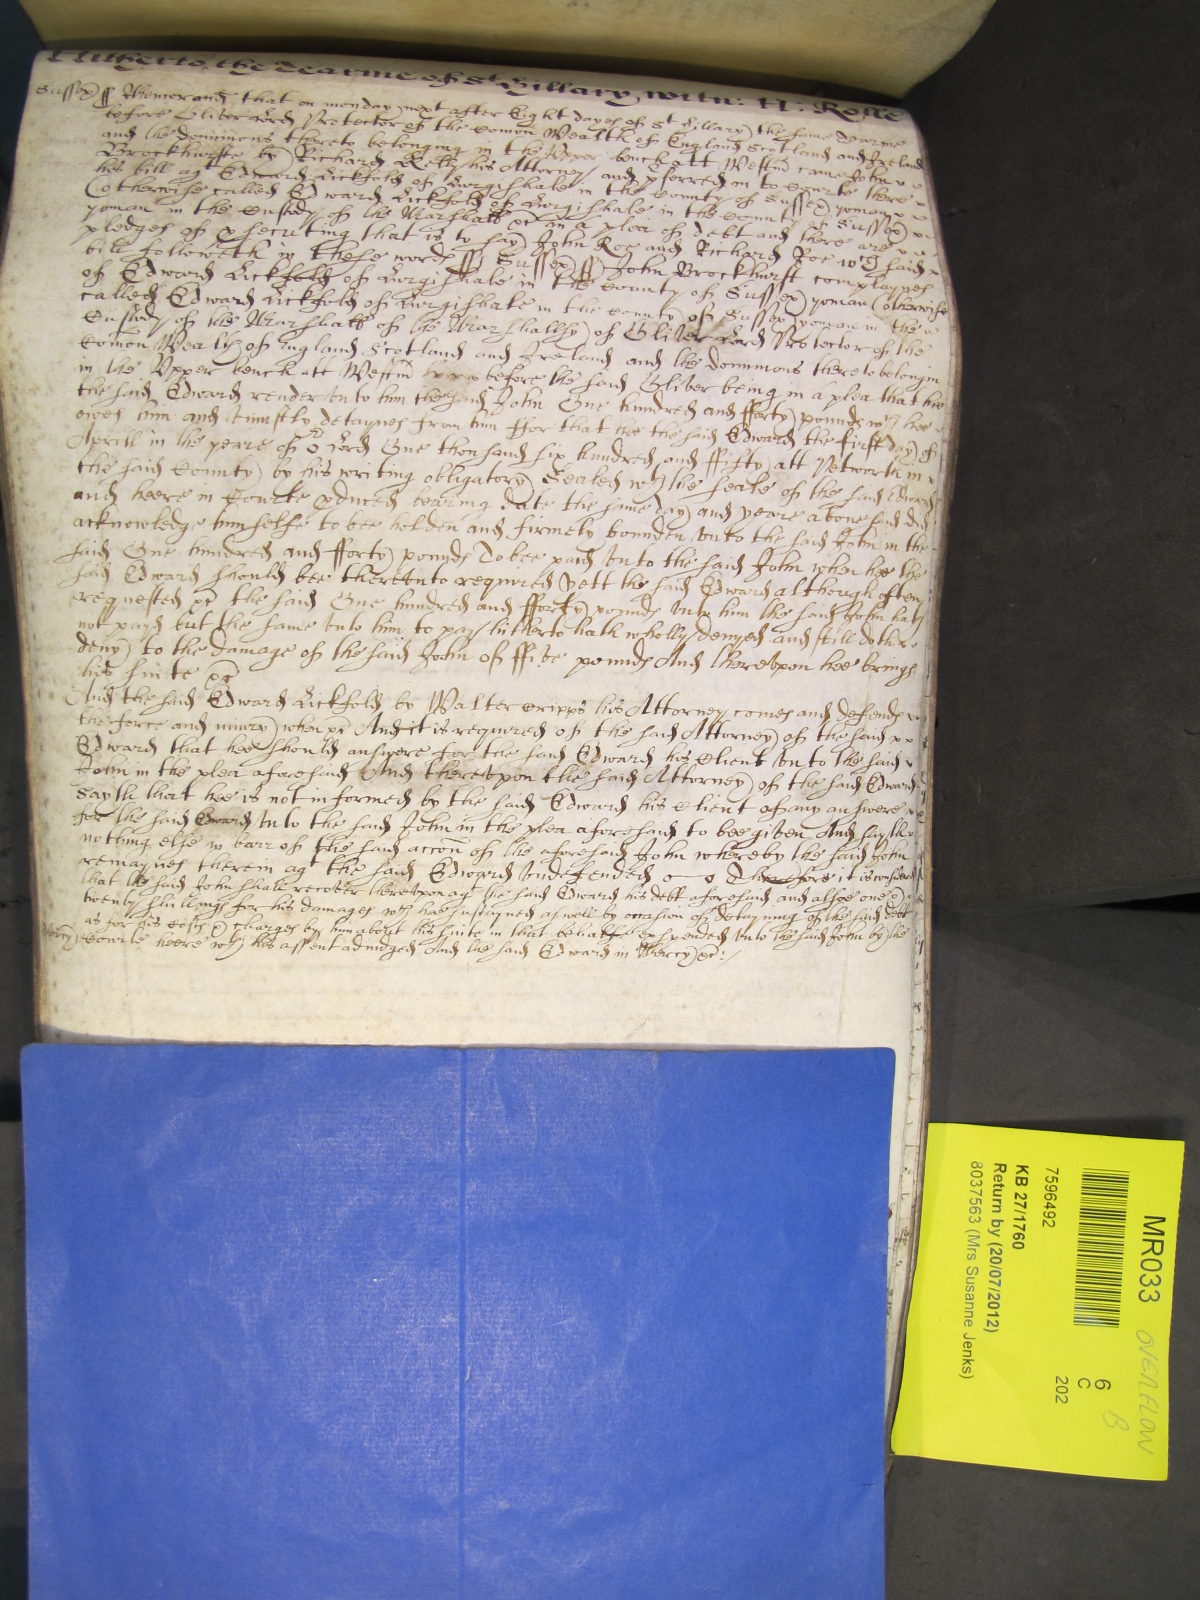 Hitherto the Tearme of St Hillary witn: H: Rolle
Sussex ss Memorand that on monday next after Eight dayes of St Hillary the same Tearme
before Oliver Lord Protector of the Comon Wealth of England Scotland and Ireland
and the dominions thereto belonging in the Upper bench att Westm came John
Brockhurste by Richard Kelly his Attorney and pferred in to Courte there
his bill agt Edward Lickfold of Lurgishale in the County of Sussex yoman
(otherwise called Edward Lickfold of Lurgishale in the County of Sussex
yoman in the Custody of the Marshall &c in a plea of debt and there are
pledges of psecuting that is to say John Roe and Richard Roe wch said
bill followeth in these words ss Sussex ss John Brockhurst complaynes
of Edward Lickfold of Lurgishale in the County of Sussex yoman (otherwise
called Edward Lickfold of Lurgishale in the County of Sussex yoman in the
Custody of the Marshall of the Marshallsy of Oliver Lord Protector of the
Comon Wealth of England Scotland and Ireland and the dominions thereto belongin
in the Upper bench att Westm before the said Oliver being in a plea that hee
the said Edward render unto him the said John One hundred and fforty pounds wch hee
owes him and uniustly detaynes from him ffor that hee the said Edward the first day of
Aprill in the yeare of or Lord One thousand six hundred and ffifty att Petworth in
the said County by his writing obligatory Sealed wth the seale of the said Edward
and heere in Courte pduced bearing date the same day and yeare abovesaid did
acknowledge himselfe to bee holden and firmely bounden unto the said John in the
said One hundred and fforty pounds To bee paid unto the said John when hee the
said Edward should bee thereunto required Yett the said Edward although often
requested &c the said One hundred and fforty pounds unto him the said John hath
not payd but the same unto him to pay hitherto hath wholly denyed and still doth
deny to the damage of the said John of ffive pounds And thereupon hee brings
his suite &c
And the said Edward Lickfold by Walter Cripps his Attorney comes and defends
the force and iniury when &c And it is required of the said Attorney of the said
Edward that hee should answere for the said Edward his Client unto the said
John in the plea aforesaid And thereupon the said Attorney of the said Edward
Sayth that hee is not informed by the said Edward his Client of any answere
for the said Edward unto the said John in the plea aforesaid to bee given And sayth
nothing else in barr of the said accon of the aforesaid John whereby the said John
remaynes therein agt the said Edward undefended Therefore it is considered
that the said John shall recover thereupon agt the said Edward his debt aforesaid and alsoe one &
twenty shillings for his damages wch hee sustayned as well by occasion of detayning of the said debt
as for his costs & charges by him about his suite in that behalfe expended unto the said John by the
Mercy Courte heere wth his assent adiudged And the said Edward in Mercy &c:/
MR033
OVERFLOW
B
6
C
202
7596492
KB 27/1760
Return by (20/07/2012)
8037563 (Mrs Susanne Jenks)